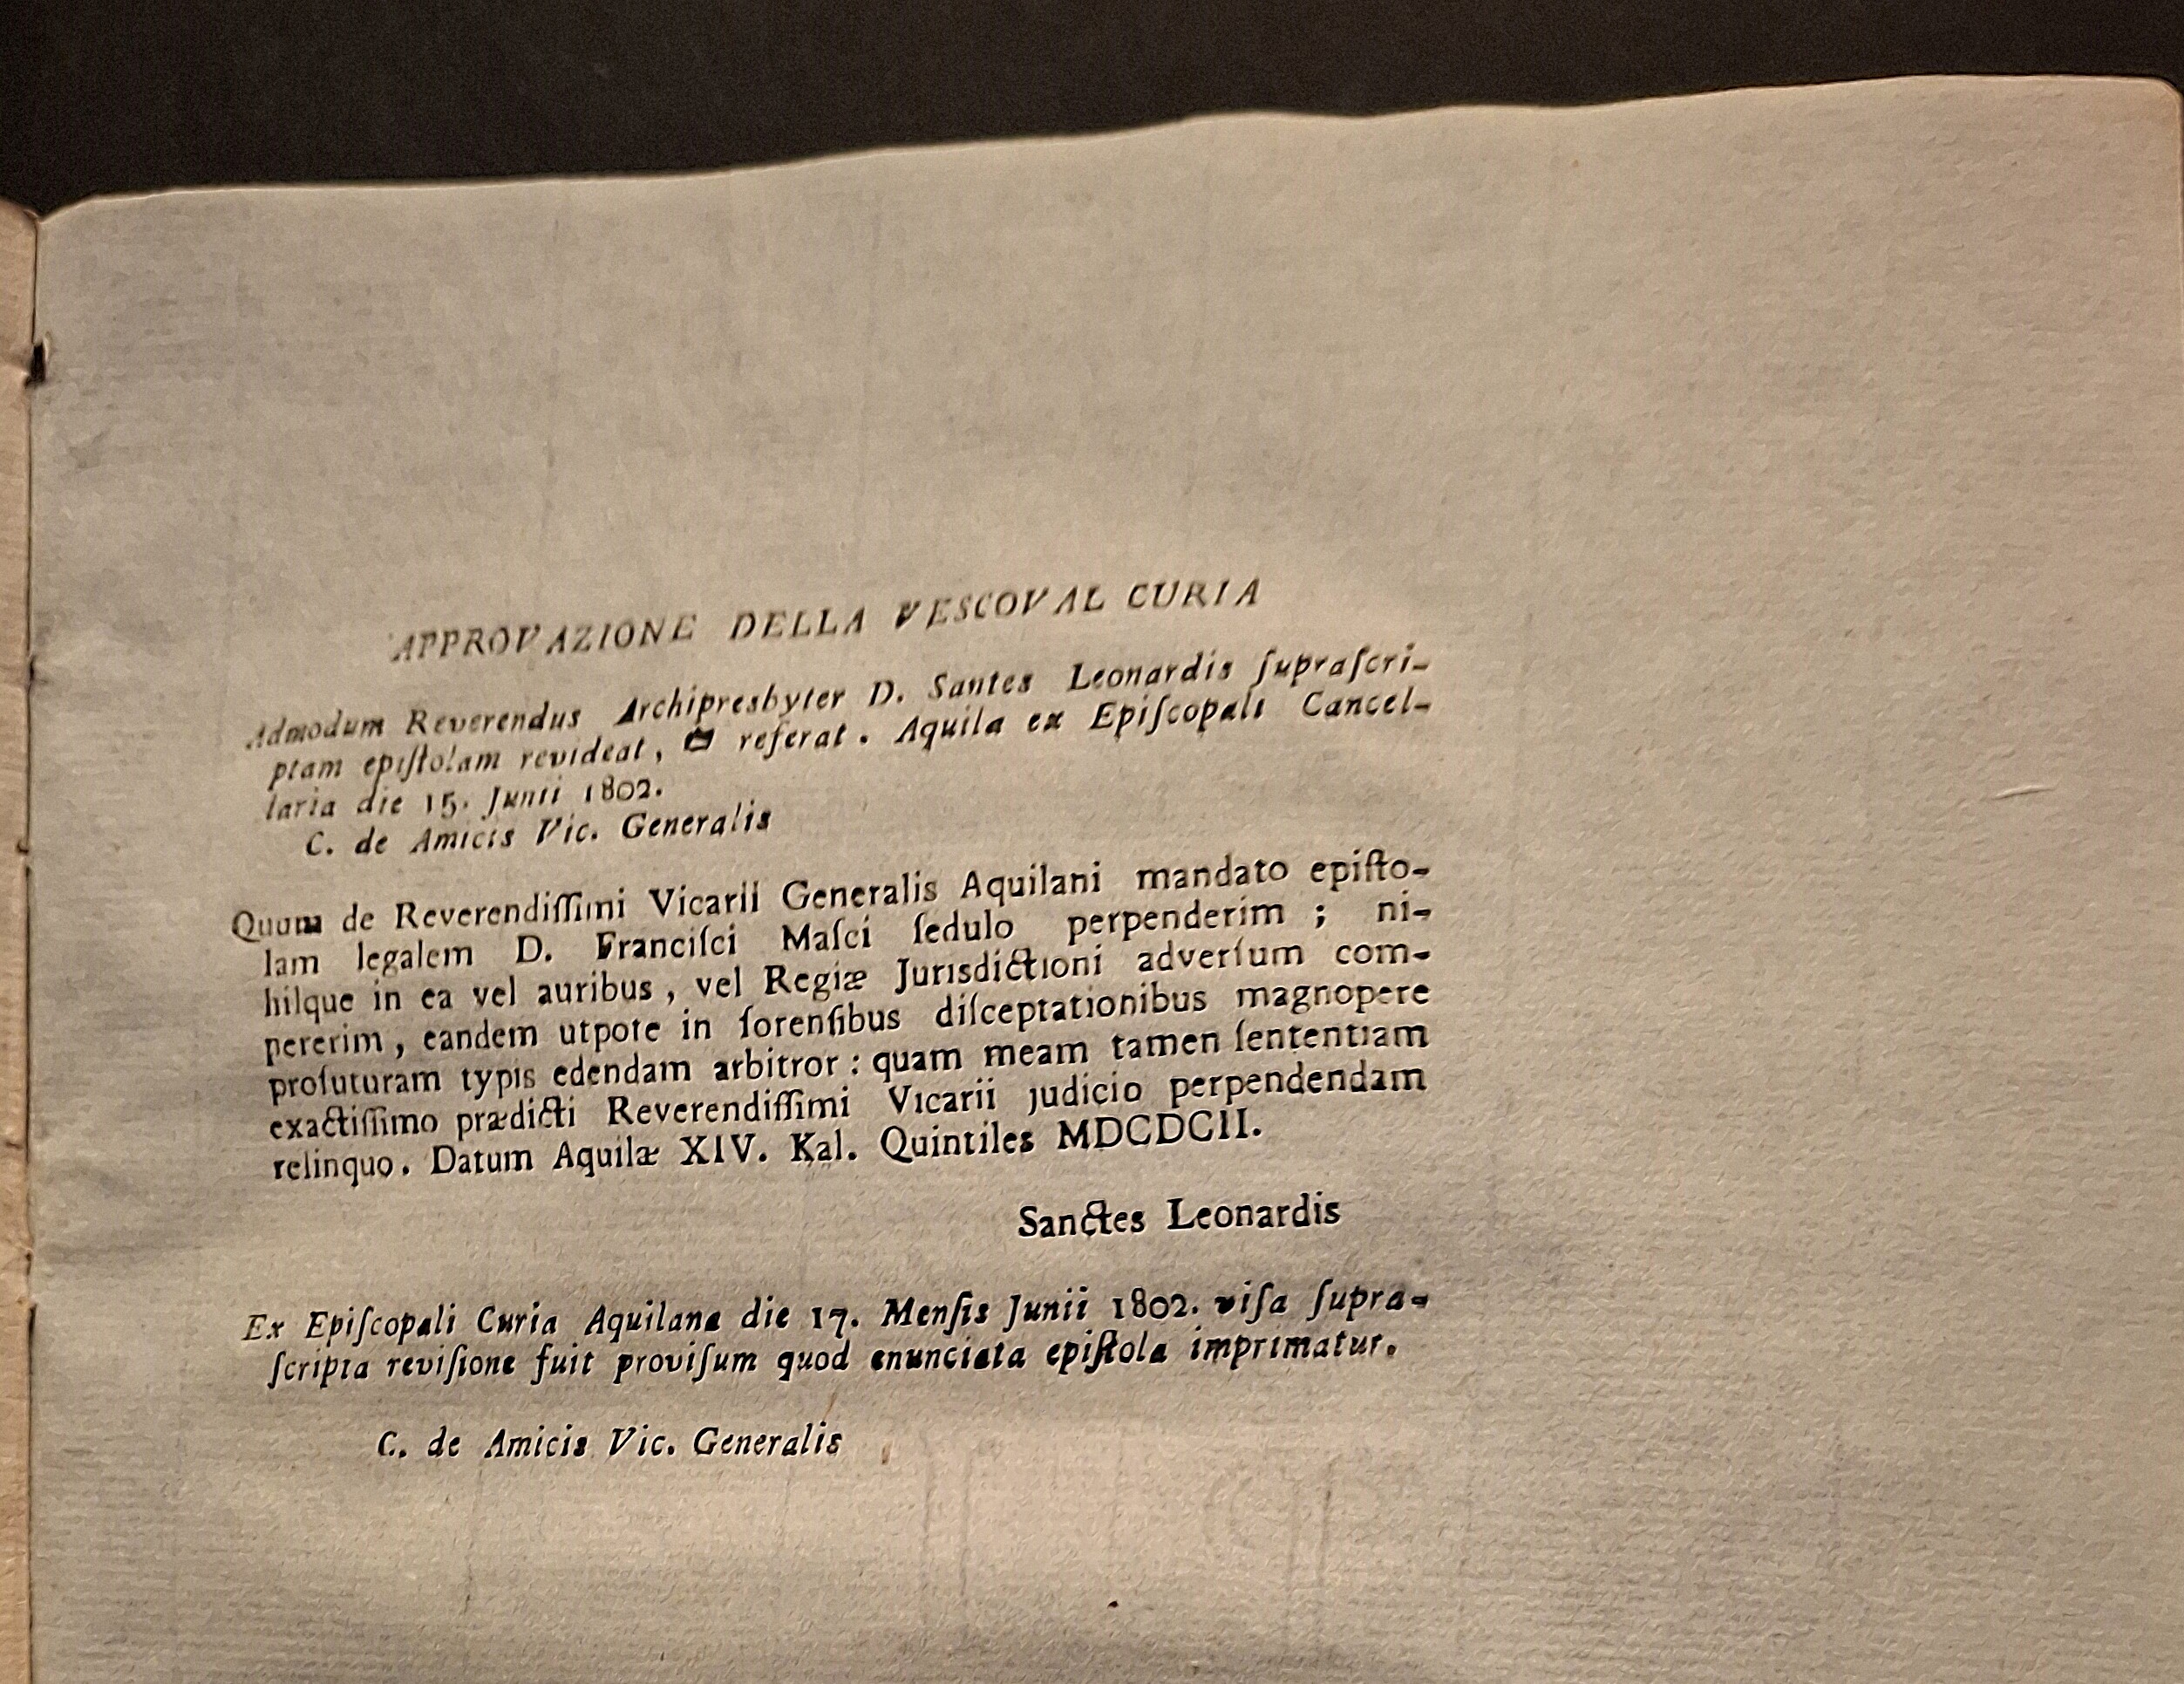 APPROVAZIONE DELLA VESCOVAL CURIA
Admodum Reverendus Archipresbyter D. Santes Leonardis ſupraſcri-
ptam epiſtolam revideat, & referat. Aquila ex Epiſcopali Cancel-
laria die 15. Junii 1802.
C. de Amicis Vic. Generalis
Quum de Reverendiſſimi Vicarii Generalis Aquilani mandato epiſto-
lam legalem D. Franciſci Maſci ſedulo perpenderim; ni-
hilque in ea vel auribus, vel Regiæ Jurisdictioni adverſum com-
pererim, eandem utpote in forenſibus diſceptationibus magnopere
profuturam typis edendam arbitror: quam meam tamen ſententiam
exactiſſimo prædicti Reverendiſſimi Vicarii judicio perpendendam
relinquo. Datum Aquilæ XIV. Kal. Quintiles MDCDCII.
Sanctes Leonardis
Ex Epiſcopali Curia Aquilana die 17. Menſis Junii 1802. viſa ſupra-
ſcripta reviſione fuit proviſum quod enunciata epiſtola imprimatur.
C. de Amicis Vic. Generalis